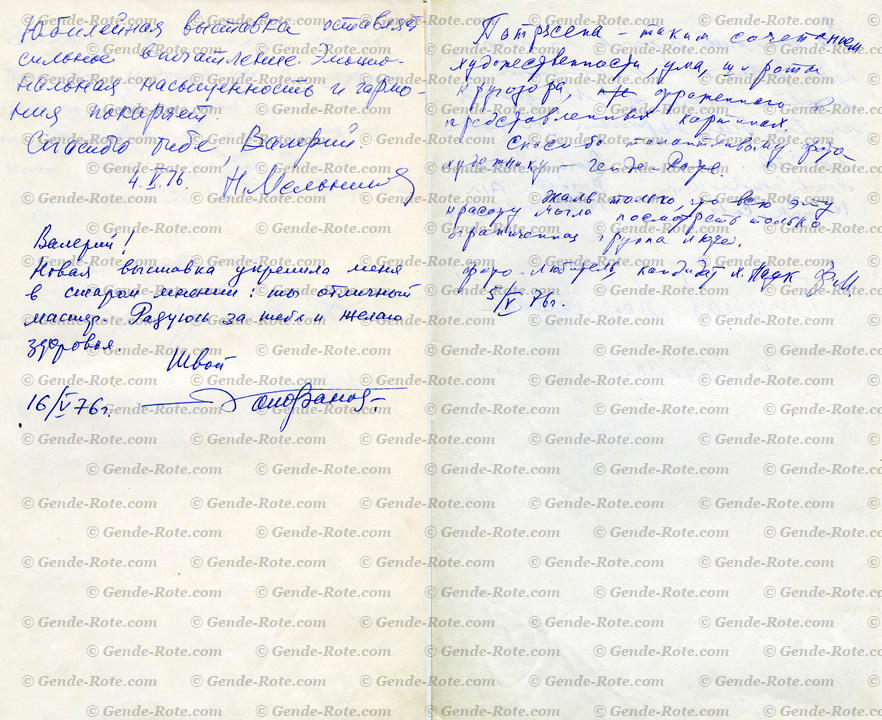 Юбилейная выставка оставляет
сильное впечатление. Эмоцио-
нальная насыщенность и гармо-
ния покоряет.
Спасибо тебе, Валерий
4.V.76. Н. Мельников
Валерий!
Новая выставка укрепила меня
в старом мнении: ты отличный
мастер. Радуюсь за тебя и желаю
здоровья.
Твой
16/V 76 г.
Потрясена – таким сочетанием
художественности, ума, широты
кругозора, отраженного в
представленных картинах.
Спасибо талантливому фото-
художнику – Генде-Роте.
Жаль только, что всю эту
красоту могла посмотреть только
ограниченная группа людей.
фото-любитель, кандидат х. наук
5/V 76 г.
© Gende-Rote.com